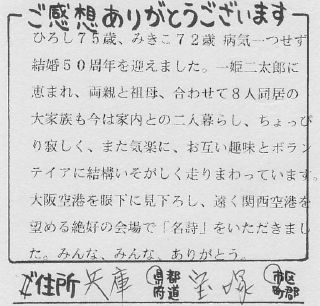 ご感想ありがとうございます
ひろし７５歳、みきこ７２歳 病気一つせず
結婚５０周年を迎えました。一姫二太郎に
恵まれ、両親と祖母、合わせて８人同居の
大家族も今は家内との二人暮らし、ちょっぴ
り寂しく、また気楽に、お互い趣味とボラン
テイアに結構いそがしく走りまわっています。
大阪空港を眼下に見下ろし、遠く関西空港を
望める絶好の会場で「名詩」をいただきまし
た。みんな、みんな、ありがとう。
ご住所 兵庫 都道府県 宝塚 市区町郡